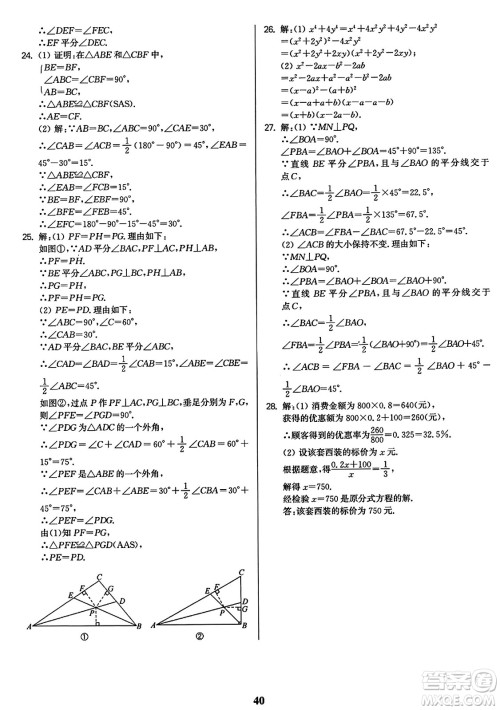 ∴∠DEF=∠FEC.
∴EF 平分∠DEC.
24. (1) 证明:在△ABE 和△CBF 中,
BE=BF,
∠ABC=∠CBF=90°,
AB=BC,
∴△ABE≌△CBF(SAS).
∴AE=CF.
(2) 解:∵AB=BC,∠ABC=90°,
∴∠CAB=∠ACB=1/2(180°-90°)=45°,∠EAB
=45°-30°=15°.
∵△ABE≌△CBF,
∴∠EAB=∠FCB=15°.
∵BE=BF,∠EBF=90°,
∴∠BFE=∠FEB=45°.
∴∠EFC=180°-90°-15°-45°=30°.
25. 解:(1) PF=PH=PG. 理由如下:
如图①,∵AD 平分∠BAC,PF⊥AC,PH⊥AB,
∴PF=PH.
∵BE 平分∠ABC,PG⊥BC,PH⊥AB,
∴PG=PH
∴PF=PH=PG.
(2) PE=PD. 理由如下:
∵∠ABC=90°,∠C=60°,
∴∠CAB=30°.
∵AD 平分∠BAC,BE 平分∠ABC,
∴∠CAD=∠BAD=1/2∠CAB=15°,∠ABE=∠CBE
=1/2∠ABC=45°.
如图②,过点 P 作 PF⊥AC,PG⊥BC,垂足分别为 F,G,
则∠PFE=∠PGD=90°,
∴∠PDG=∠C+∠CAD=60°+1/2∠CAB=60°+
15°=75°.
∵∠PEF 是△ABE 的一个外角,
∴∠PEF=∠CAB+∠ABE=30°+1/2∠ABC=30°
+45°=75°.
∴∠PEF=∠PDG.
由(1)知 PF=PG
∴△PFE≌△PGD(AAS).
∴PE=PD.
A
B
C
D
E
F
G
P
①
A
B
C
D
E
F
G
P
②
26. 解:(1) x⁴+4y⁴=x⁴+4x²y²+4y²-4x²y²
=(x²+2y²)²-4x²y²
=(x²+2y²+2xy)(x²+2y²-2xy).
(2) x²-2ax-b²-2ab
=x²-2ax+a²-a²-b²-2ab
=(x-a)²-(a+b)²
=(x-a+a+b)(x-a-a-b)
=(x+b)(x-2a-b).
27. 解:(1) ∵MN⊥PQ,
∴∠BOA=90°.
∴∠PBA=∠BOA+∠BAO=90°+45°=135°.
∵直线 BE 平分∠PBA,与∠BAO 的平分线交于
点 C,
∴∠CAB=1/2∠BAO=1/2×45°=22.5°,
∠FBA=1/2∠PBA=1/2×135°=67.5°.
∴∠ACB=∠FBA-∠CAB=67.5°-22.5°=45°.
(2) ∠ACB 的大小保持不变. 理由如下:
∵MN⊥PQ,
∴∠BOA=90°.
∴∠PBA=∠BOA+∠BAO=90°+∠BAO.
∵直线 BE 平分∠PBA,与∠BAO 的平分线交于
点 C,
∴∠CAB=1/2∠BAO,
∠FBA=1/2∠PBA=1/2(90°+∠BAO)=45°+
1/2∠BAO.
∴∠ACB=∠FBA-∠BAC=45°+1/2∠BAO-
1/2∠BAO=45°.
28. 解:(1) 消费金额为 800×0.8=640(元),
获得优惠额为 800×0.2+100=260(元),
∴顾客得到的优惠率为260/800=0.325=32.5%.
(2) 设该套西装的标价为 x 元.
根据题意,得(0.2x+100)/x=1/3
解得 x=750.
经检验 x=750 是原分式方程的解.
答:该套西装的标价为 750 元.
40